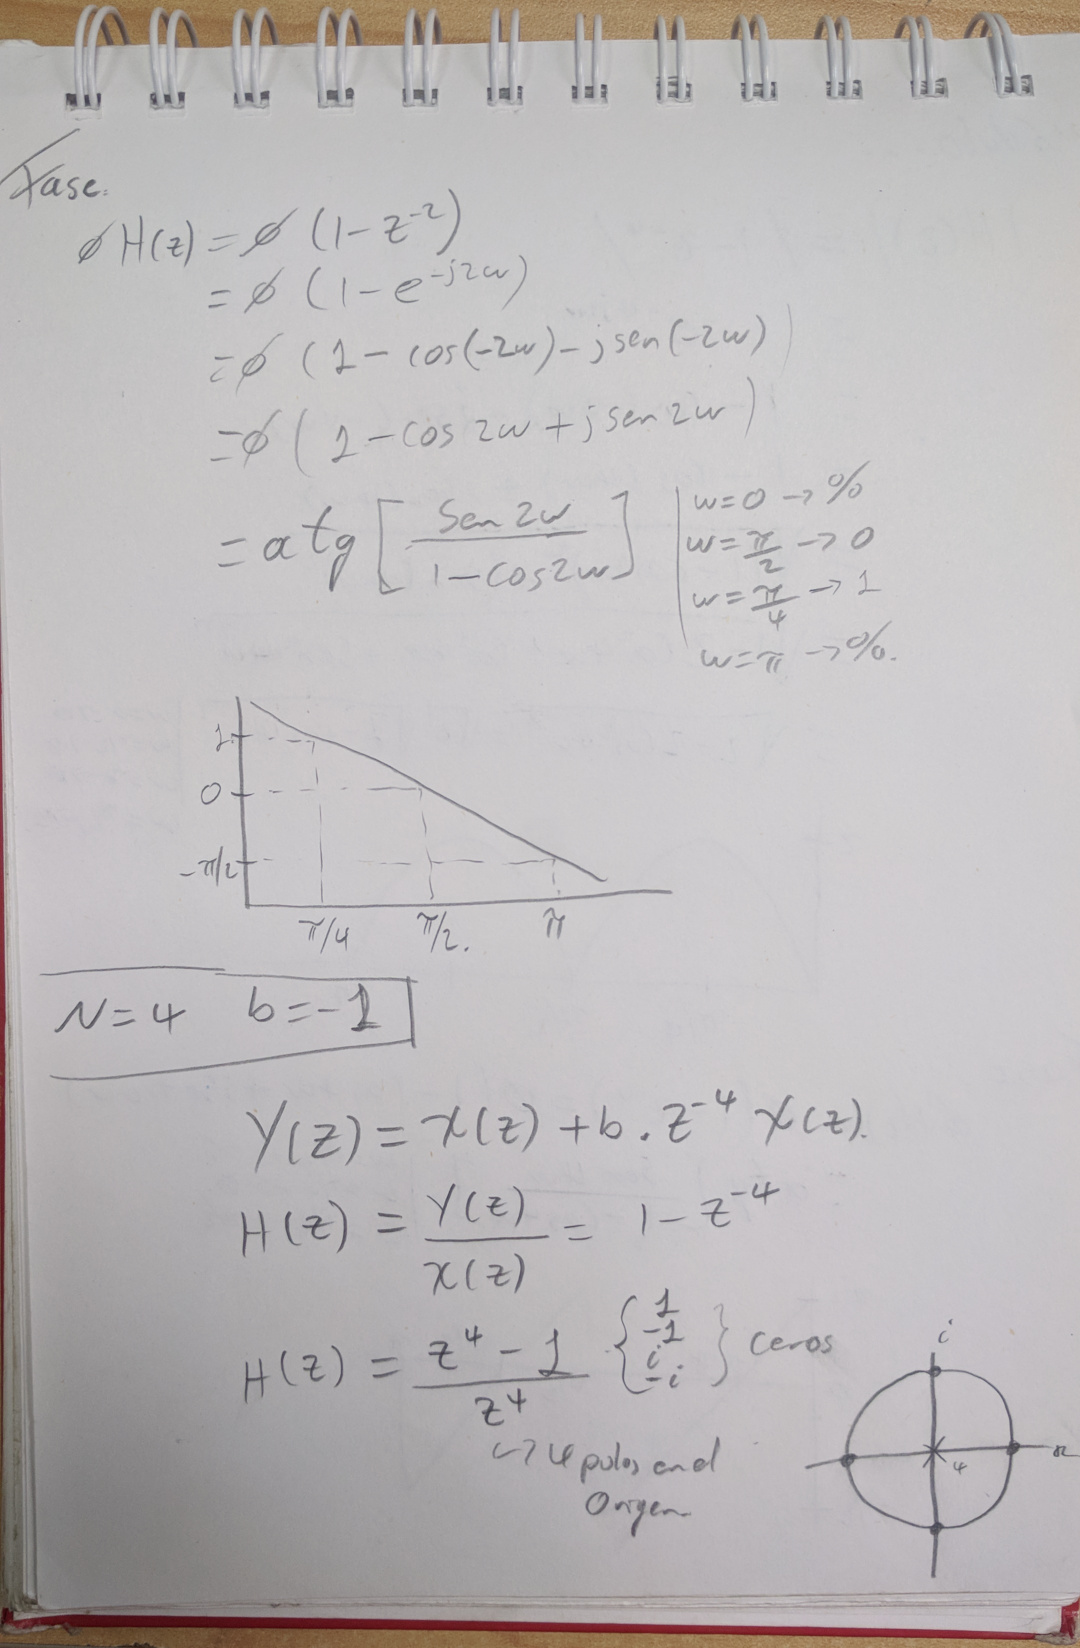 Fase.
∅ H(z) = ∅ (1-z⁻²)
= ∅ (1-e^-j2w)
= ∅ (1-cos(-2w)-jsen(-2w))
= ∅ (1-cos 2w + jsen 2w)
= atg [ sen 2w / 1-cos2w ]
w=0 → %
w=π/2 → 0
w=π/4 → 1
w=π → %.
1
0
-π/2
π/4 π/2. π
N=4 b=-1
Y(z) = X(z) + b . z⁻⁴ X(z).
H(z) = Y(z) / X(z) = 1-z⁻⁴
H(z) = z⁴-1 / z⁴ { 1 -1 i -i } ceros
↳ 4 polos en el
Origen.
i
4